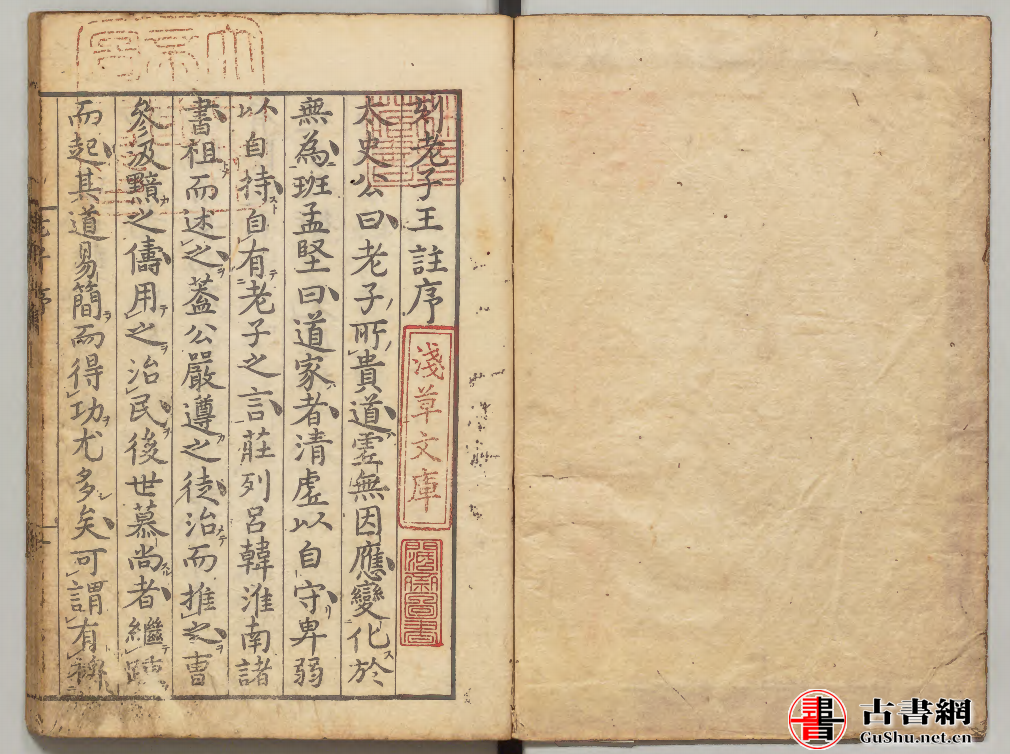 刻老子王註序
太史公曰老子所貴道虛無因應變化於
無為班孟堅曰道家者清虛以自守卑弱
以自持自有老子之言莊列呂韓淮南諸
書祖而述之蓋公嚴遵之徒治而推之曹
參汲黯之儔用之治民後世慕尚者繼踵
而起其道易簡而得功尤多矣可謂有裨
淺草文庫
老子序
古書網
GuShu.net.cn